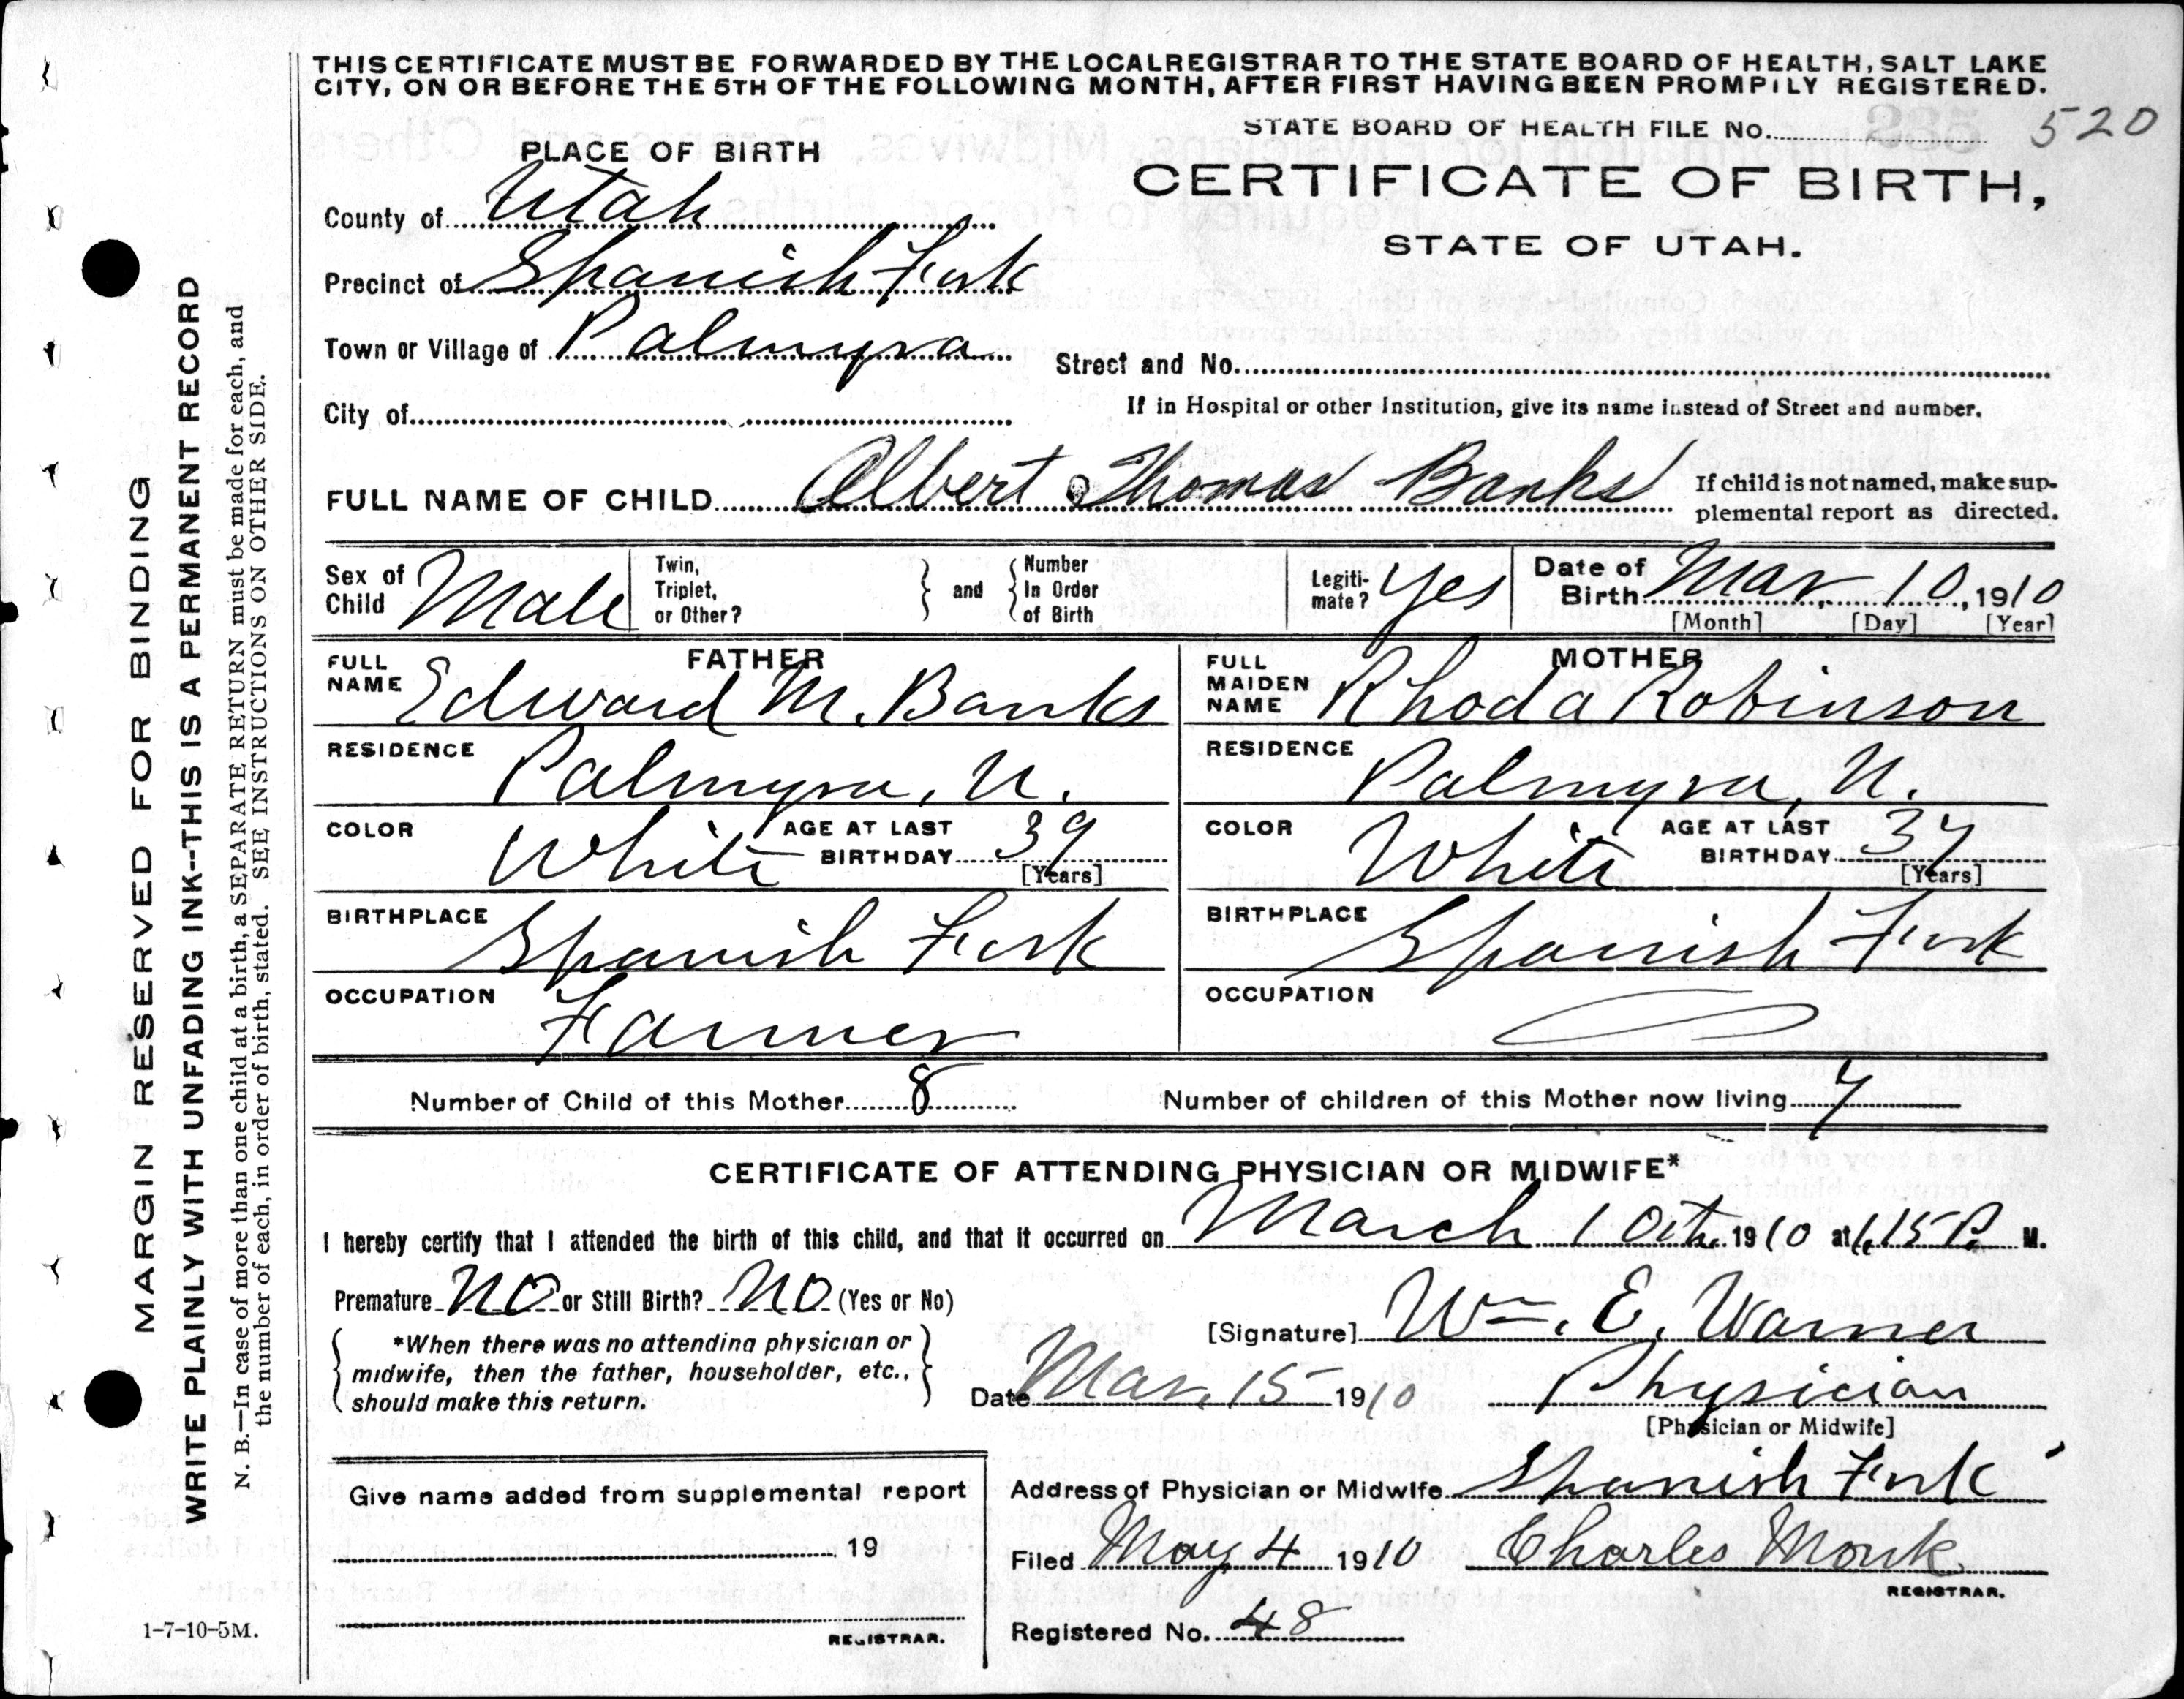 THIS CERTIFICATE MUST BE FORWARDED BY THE LOCAL REGISTRAR TO THE STATE BOARD OF HEALTH, SALT LAKE
CITY, ON OR BEFORE THE 5TH OF THE FOLLOWING MONTH, AFTER FIRST HAVING BEEN PROMPILY REGISTERED.
STATE BOARD OF HEALTH FILE No. 520
PLACE OF BIRTH
CERTIFICATE OF BIRTH,
STATE OF UTAH.
County of Utah
Precinct of Spanish Fork
Town or Village of Palmyra
Street and No.
City of
If in Hospital or other Institution, give its name instead of Street and number.
FULL NAME OF CHILD Albert Thomas Banks
If child is not named, make sup-
plemental report as directed.
Sex of Child Male
Twin, Triplet, or Other? } and { Number In Order of Birth
Legiti-mate? Yes
Date of Birth Mar. 10, 1910
[Month] [Day] [Year]
FATHER
FULL NAME Edward M. Banks
RESIDENCE Palmyra, U.
COLOR White AGE AT LAST BIRTHDAY 39 [Years]
BIRTHPLACE Spanish Fork
OCCUPATION Farmer
MOTHER
FULL MAIDEN NAME Rhoda Robinson
RESIDENCE Palmyra, U.
COLOR White AGE AT LAST BIRTHDAY 37 [Years]
BIRTHPLACE Spanish Fork
OCCUPATION
Number of Child of this Mother 8 Number of children of this Mother now living 7
CERTIFICATE OF ATTENDING PHYSICIAN OR MIDWIFE*
I hereby certify that I attended the birth of this child, and that it occurred on March 10th 1910 at 1.15 P. M.
Premature No or Still Birth? No (Yes or No)
*When there was no attending physician or
midwife, then the father, householder, etc.,
should make this return.
[Signature] Wm. E. Warner
Date Mar. 15 1910 Physician
[Physician or Midwife]
Give name added from supplemental report
19
REGISTRAR.
Address of Physician or Midwife Spanish Fork
Filed May 4 1910 Charles Monk
REGISTRAR.
Registered No. 48
1-7-10-5M.
MARGIN RESERVED FOR BINDING
WRITE PLAINLY WITH UNFADING INK--THIS IS A PERMANENT RECORD
N. B.—In case of more than one child at a birth, a SEPARATE RETURN must be made for each, and
the number of each, in order of birth, stated. SEE INSTRUCTIONS ON OTHER SIDE.